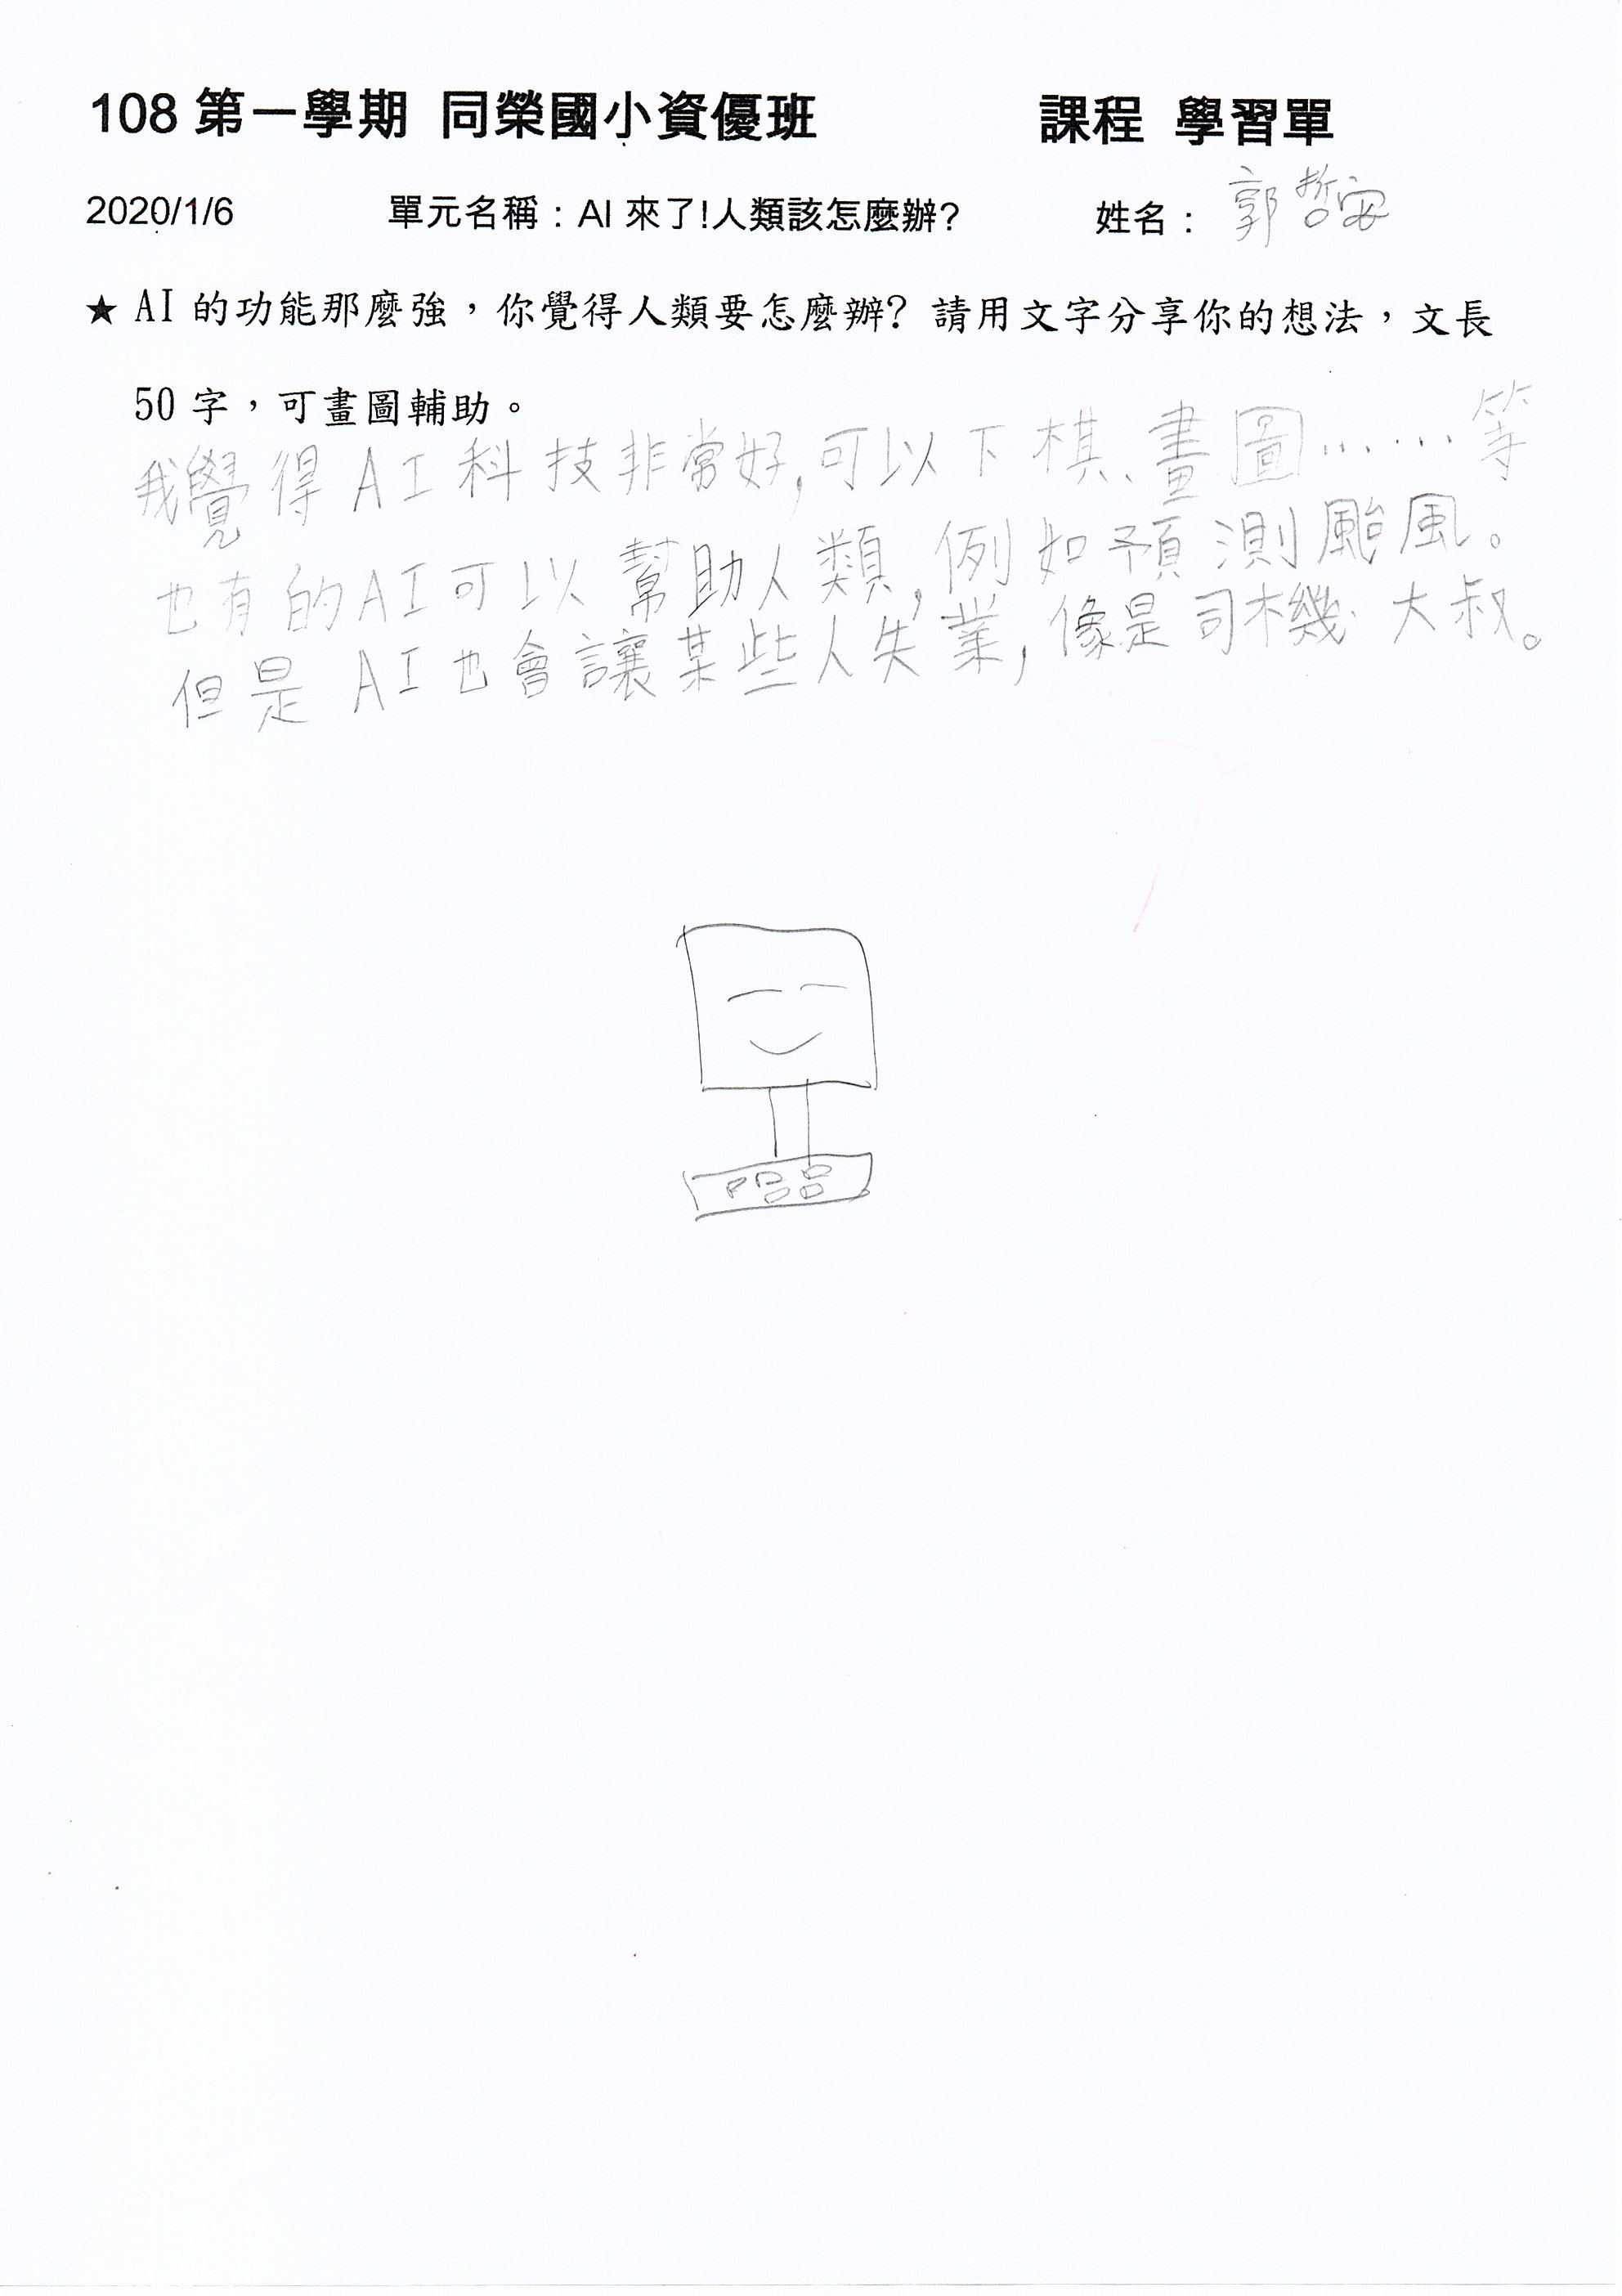 108 第一學期 同榮國小資優班 課程 學習單
2020/1/6 單元名稱：AI 來了!人類該怎麼辦? 姓名： 郭哲安
★ AI 的功能那麼強，你覺得人類要怎麼辦? 請用文字分享你的想法，文長
50 字，可畫圖輔助。
我覺得AI科技非常好,可以下棋、畫圖……等
也有的AI可以幫助人類,例如預測颱風。
但是AI也會讓某些人失業,像是司機大叔。